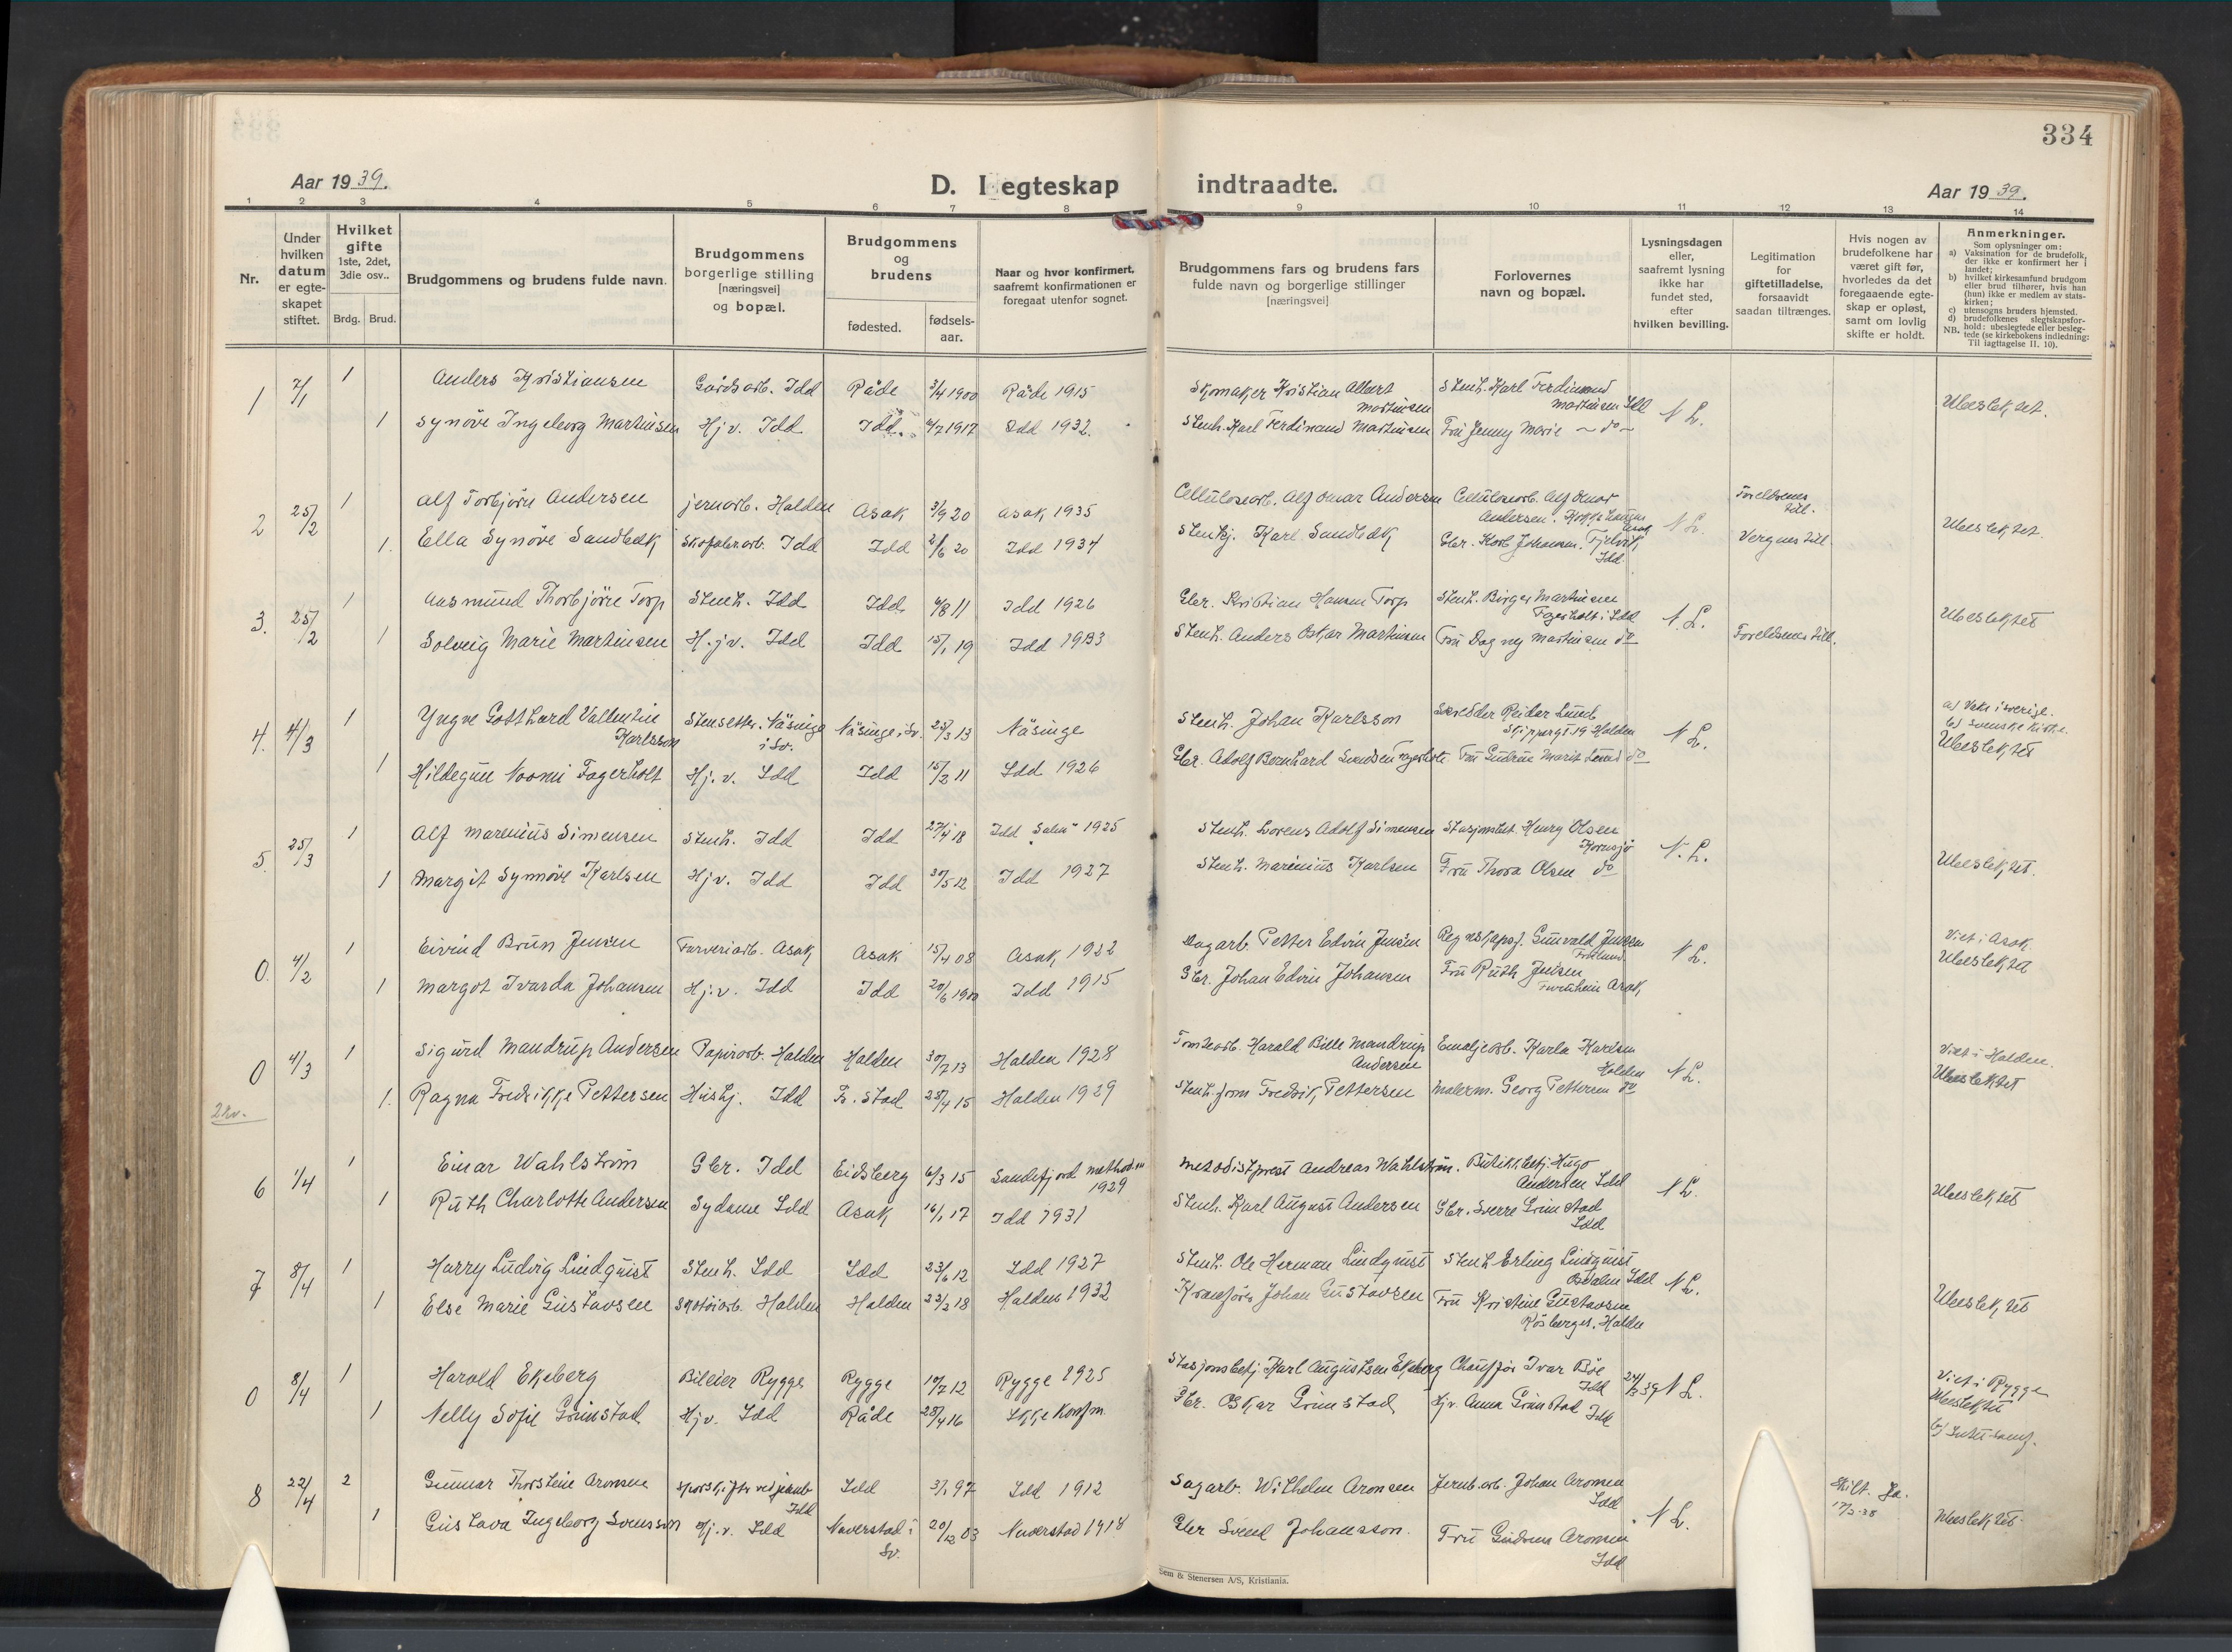 334
Aar 1939.
D. I egteskap indtraadte.
Aar 1939.
1 2 3 4 5 6 7 8 9 10 11 12 13 14
Nr.
Under hvilken datum er egteskapet stiftet.
Hvilket gifte 1ste, 2det, 3die osv..
Brdg. Brud.
Brudgommens og brudens fulde navn.
Brudgommens borgerlige stilling [næringsvei] og bopæl.
Brudgommens og brudens
fødested.
fødselsaar.
Naar og hvor konfirmert, saafremt konfirmationen er foregaat utenfor sognet.
Brudgommens fars og brudens fars fulde navn og borgerlige stillinger [næringsvei]
Forlovernes navn og bopæl.
Lysningsdagen eller, saafremt lysning ikke har fundet sted, efter hvilken bevilling.
Legitimation for giftetilladelse, forsaavidt saadan tiltrænges.
Hvis nogen av brudefolkene har været gift før, hvorledes da det foregaaende egteskap er opløst, samt om lovlig skifte er holdt.
Anmerkninger.
Som oplysninger om:
a) Vaksination for de brudefolk, der ikke er konfirmert her i landet;
b) hvilket kirkesamfund brudgom eller brud tilhører, hvis han (hun) ikke er medlem av statskirken;
c) utensogns bruders hjemsted.
d) brudefolkenes slegtskapsforhold: ubeslegtede eller beslegtede (se kirkebokens indledning: Til iagttagelse II. 10).
NB.
1 7/1 1 Anders Kristiansen Gårdsarb. Idd Råde 3/4 1900 Råde 1915 Skomaker Kristian Albert Martinsen Stenh. Karl Ferdinand Martinsen Idd N L. Ubeslektet.
1 Synöve Ingeborg Martinsen Hjv. Idd Idd 4/7 1917 Idd 1932. Stenh. Karl Ferdinand Martinsen Fru Jenny Marie ~ do ~
2 25/2 1 Alf Torbjörn Andersen jernarb. Halden Asak 3/9 20 Asak 1935 Cellulosearb. Alf Omar Andersen Cellulosearb. Alf Omar Andersen. Asak N L. Foreldrenes till. Ubeslektet.
1. Ella Synöve Sandbæk Skofabrarb. Idd Idd 2/6 20 Idd 1934 Stenhj. Karl Sandbæk Gbr. Karl Johansen. Fjelvik Idd. Verges till.
3. 25/2 1 Aasmund Thorbjörn Torp Stenh. Idd Idd 4/8 11 Idd 1926 Gbr. Kristian Hansen Torp Stenh. Birger Martinsen Fagerholt i Idd N. L. Ubeslektet
1 Solveig Marie Martinsen H.jv. Idd Idd 15/1 19 Idd 1933 Stenh. Anders Oskar Martinsen Fru Dagny Martinsen do Foreldrenes till.
4. 4/3 1 Yngve Gotthard Vallentin Karlsson Stensetter. Näsinge i Sv. Näsinge i Sv. 25/3 13 Näsinge Stenh. Johan Karlsson Skredder Reidar Lund Skippergt 19 Halden N L. a) Vaks i sverige. b) Svenske kirke. Ubeslektet
1 Hildegun Noomi Fagerholt Hj.v. Idd Idd 15/2 11 Idd 1926 Gbr. Adolf Bernhard Svendsen Fagerholt Fru Gudrun Marit Lund do
5. 25/3 1 Alf Marenius Simensen Stenh. Idd Idd 27/4 18 Idd 1925 Stenh. Lorens Adolf Simensen Stasjonsbet. Henry Olsen Kornsjö N. L. Ubeslektet.
1 Margit Synnöve Karlsen Hjv. Idd Idd 30/5 12 Idd 1927 Stenh. Marinius Karlsen Fru Thora Olsen do
0. 4/2 1 Eivind Brun Jensen Farveriarb. Asak Asak 15/4 08 Asak 1922 Dagarb. Petter Edvin Jensen Regnskapsf. Gunvald Jensen N L. Viet i Asak. Ubeslektet
1 Margot Ivarda Johansen Hj.v. Idd Idd 20/6 1900 Idd 1915 Gbr. Johan Edvin Johansen Fru Ruth Jensen Furuheim Asak,
0 4/3 1 Sigurd Mandrup Andersen Papirarb. Halden Halden 30/7 13 Halden 1928 Tomtearb. Harald Bille Mandrup Andersen Emaljearb. Karla Karlsen Halden N L. Viet i Halden. Ubeslektet
2 kv.
1. Ragna Fredrikke Pettersen Hushj. Idd Fr. stad 25/4 15 Halden 1929 Stenh. form Fredrik Pettersen Malerm. Georg Pettersen do
6 1/4 1 Einar Wahlström Gbr. Idd Eidsberg 6/3 15 Sandefjord 1929 Metodistprest Andreas Wahlström. Butikkbetj. Hugo Andersen Idd N L. Ubeslektet
1 Ruth Charlotte Andersen Sydame Idd Asak 16/1 17 Idd 1931 Stenh. Karl August Andersen Gbr. Sverre Grimstad Idd
7 8/4 1 Harry Ludvig Lindquist Stenh. Idd Idd 23/6 12 Idd 1927 Stenh. Ole Herman Lindquist Stenh Erling Lindquist Idd N L. Ubeslektet
1 Else Marie Gustavsen Skotöiarb. Halden Halden 23/2 18 Halden 1932 Kranförer Johan Gustavsen Fru Kristine Gustavsen Rösberget. Halden
0 8/4 1 Harald Ekeberg Bileier Rygge Rygge 10/7 12 Rygge 1925 Stasjonsbetj Karl Augustsen Ekeberg Chauffør Ivar Böe Idd 24/3 39 N L. Viet i Rygge Ubeslektet
1 Nelly Sofie Grimstad Hjv. Idd Råde 28/4 16 Ikke Konfm. Gbr. Oskar Grimstad Hjv. Anna Grimstad Idd
8 22/4 2 Gunnar Thorstein Aronsen Idd Idd 3/1 97 Idd 1912 Sagarb. Wilhelm Aronsen Jernb.arb. Johan Aronsen Idd N L. Skilt. Ja. Ubeslektet.
1 Gustava Ingeborg Svensson Hj.v. Idd Naverstad i Sv. 20/12 03 Naverstad 1918 Gbr Svend Johansson. Fru Gudrun Aronsen Idd
Sem & Stenersen A/S, Kristiania.